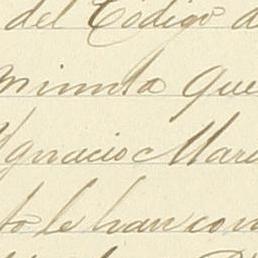 del Codigo d
minuta que
Ygnacio Mari
to le han con